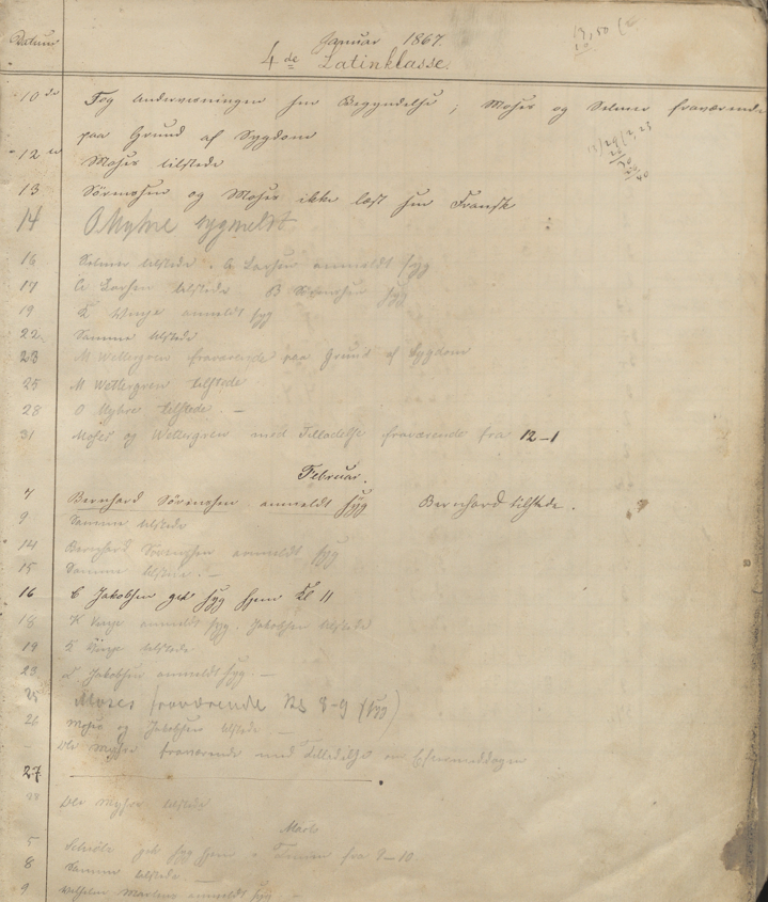 Datum
Januar 1867.
4de Latinklasse.
10de Tog Undervisningen sin Begyndelse; Moses og Selmer fraværende
paa Grund af Sygdom
12te Moses tilstede
13 Sörensen og Moses ikke læst sin Fransk
14 O Myhre sygmeldt
16 Selmer tilstede. Larsen anmeldt syg
17 Larsen tilstede B Sörensen syg
19 K Vinje anmeldt syg
22 Samme tilstede
23 M Wettergren fraværende paa Grund af Sygdom
25 M Wettergren tilstede
28 O Myhre tilstede. —
31 Moses og Wettergren med Tilladelse fraværende fra 12-1
Februar.
7 Bernhard Sörensen anmeldt syg Bernhard tilstede.
9 Samme tilstede
14 Bernhard Sörensen anmeldt syg
15 Samme tilstede. —
16 Jakobsen gik syg hjem Kl 11
18 K Vinje anmeldt syg. Jakobsen tilstede
19 K Vinje tilstede
23 Jakobsen anmeldt syg. —
25 Moses fraværende Kl 8-9 (syg)
26 Moses og Jakobsen tilstede —
Ole Myhre fraværende med Tilladelse om Eftermiddagen
27
28 Ole Myhre tilstede
Marts
5 gik syg hjem Timen fra 9-10.
8 Samme tilstede. —
9 Wilhelm Martens anmeldt syg —